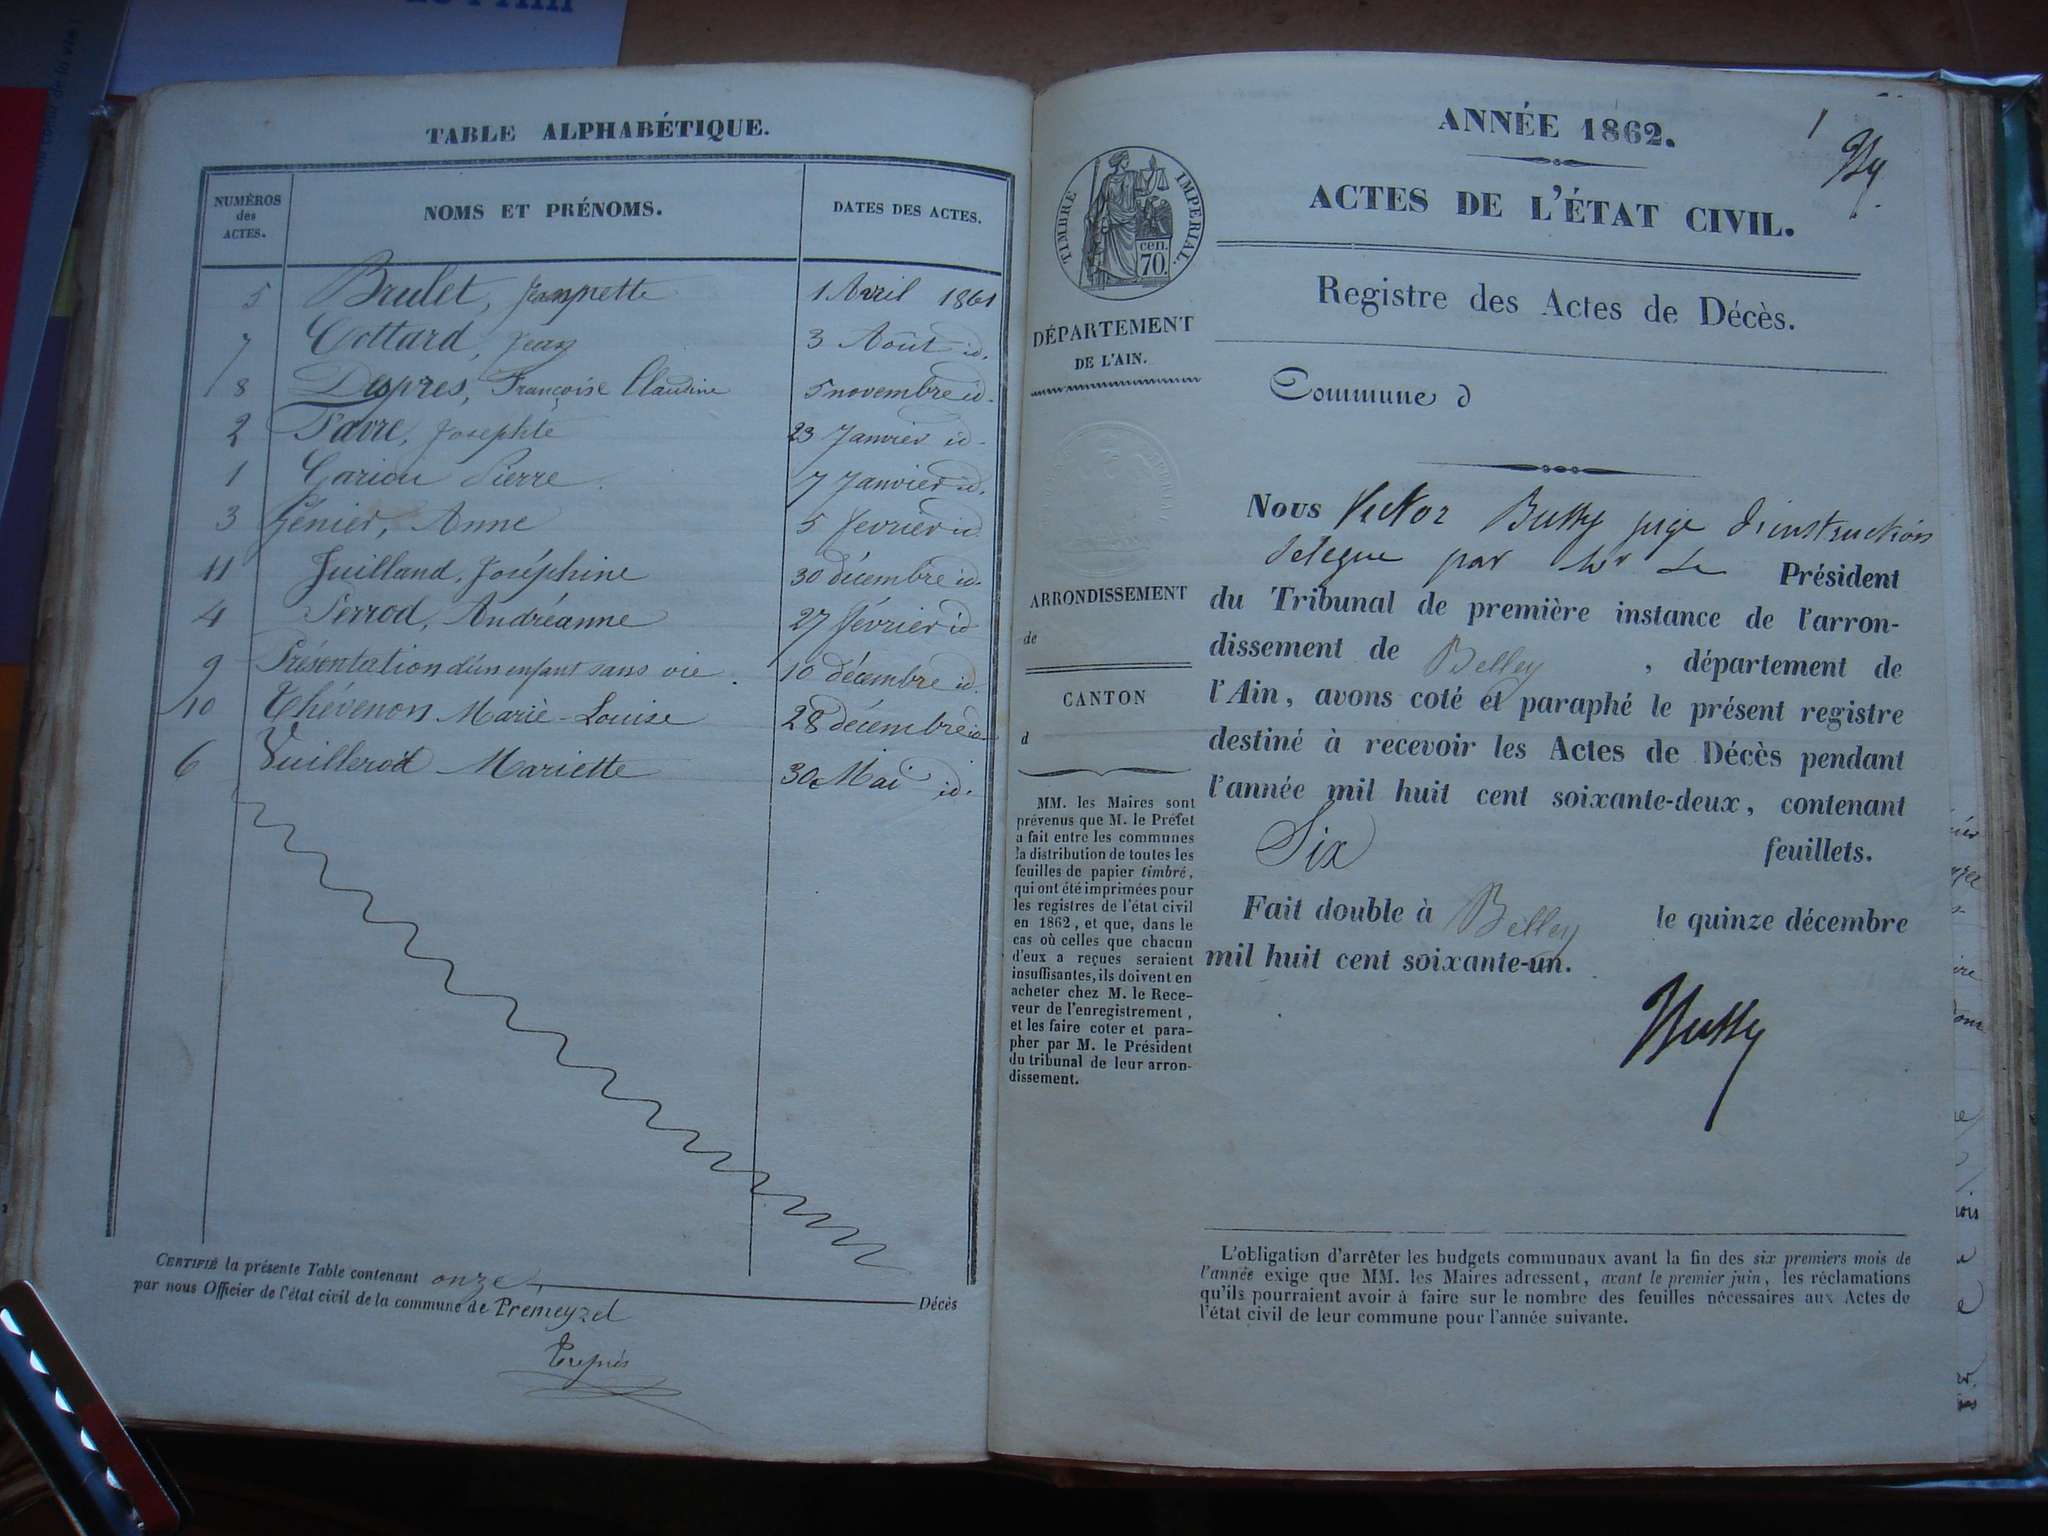 TABLE ALPHABÉTIQUE.
NUMÉROS des ACTES. NOMS ET PRÉNOMS. DATES DES ACTES.
5 Brulet, Jeannette 1 Avril 1861
7 Cottard, Jean 3 Août id.
8 Despres, Françoise Claudine 5 novembre id.
2 Favre, Josephte 23 Janvier id.
1 Pierre 7 Janvier id.
3 Genier, Anne 5 fevrier id
11 Juilland, Joséphine 30 décembre id.
4 Perrod, Andréanne 27 février id
9 Présentation d'un enfant sans vie. 10 décembre id.
10 Thévenon Marie-Louise 28 décembre id
6 Vuillerod Mariette 30 Mai id.
CERTIFIÉ la présente Table contenant onze Décès
par nous Officier de l'état civil de la commune de Prémeyzel
ANNÉE 1862.
1
ACTES DE L'ÉTAT CIVIL.
TIMBRE IMPERIAL.
cen.
70.
Registre des Actes de Décès.
DÉPARTEMENT
DE L'AIN.
Commune d
Nous Victor Bussy juge d'instruction
delegue par Mr Le Président
du Tribunal de première instance de l'arron-
dissement de Belley, département de
l'Ain, avons coté et paraphé le présent registre
destiné à recevoir les Actes de Décès pendant
l'année mil huit cent soixante-deux, contenant
Six feuillets.
Fait double à Belley le quinze décembre
mil huit cent soixante-un.
Bussy
ARRONDISSEMENT
de
CANTON
d
MM. les Maires sont
prévenus que M. le Préfet
a fait entre les communes
la distribution de toutes les
feuilles de papier timbré,
qui ont été imprimées pour
les registres de l'état civil
en 1862, et que, dans le
cas où celles que chacun
d'eux a reçues seraient
insuffisantes, ils doivent en
acheter chez M. le Rece-
veur de l'enregistrement,
et les faire coter et para-
pher par M. le Président
du tribunal de leur arron-
dissement.
L'obligation d'arrêter les budgets communaux avant la fin des six premiers mois de
l'année exige que MM. les Maires adressent, avant le premier juin, les réclamations
qu'ils pourraient avoir à faire sur le nombre des feuilles nécessaires aux Actes de
l'état civil de leur commune pour l'année suivante.